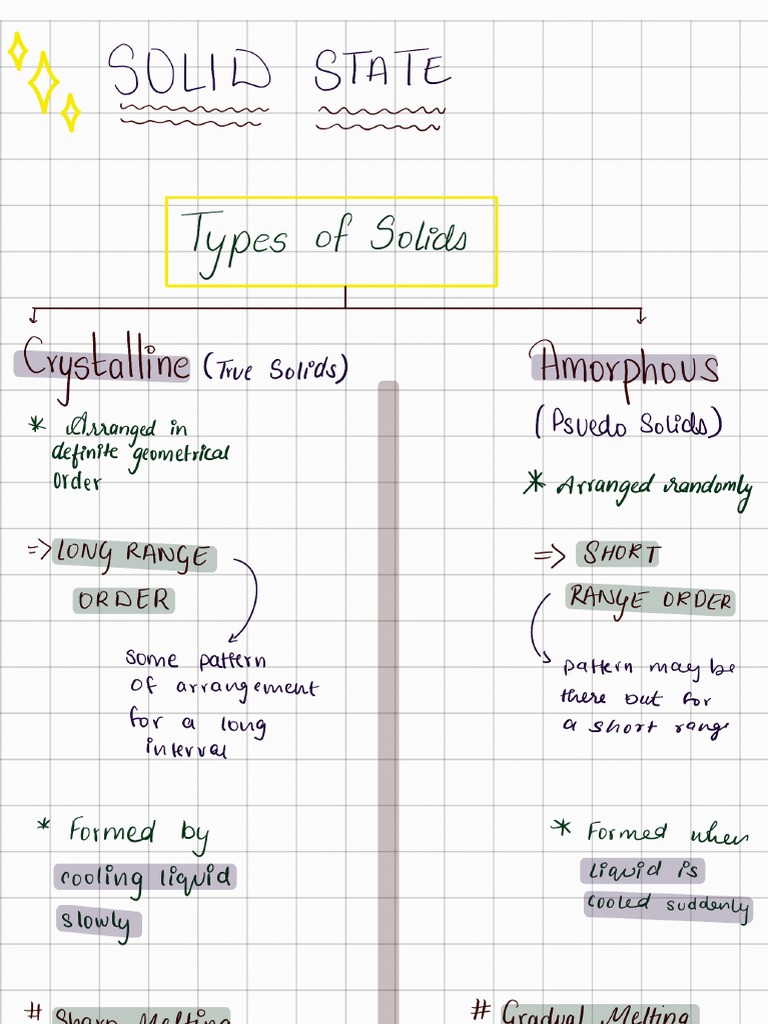 SOLID STATE
Types of Solids
Crystalline (True Solids)
* Arranged in
definite geometrical
order
=> LONG RANGE
ORDER
some pattern
of arrangement
for a long
interval
* Formed by
cooling liquid
slowly
# Sharp Melting
Amorphous
(Psuedo Solids)
* Arranged randomly
=> SHORT
RANGE ORDER
pattern may be
there but for
a short range
* Formed when
liquid is
cooled suddenly
# Gradual Melting